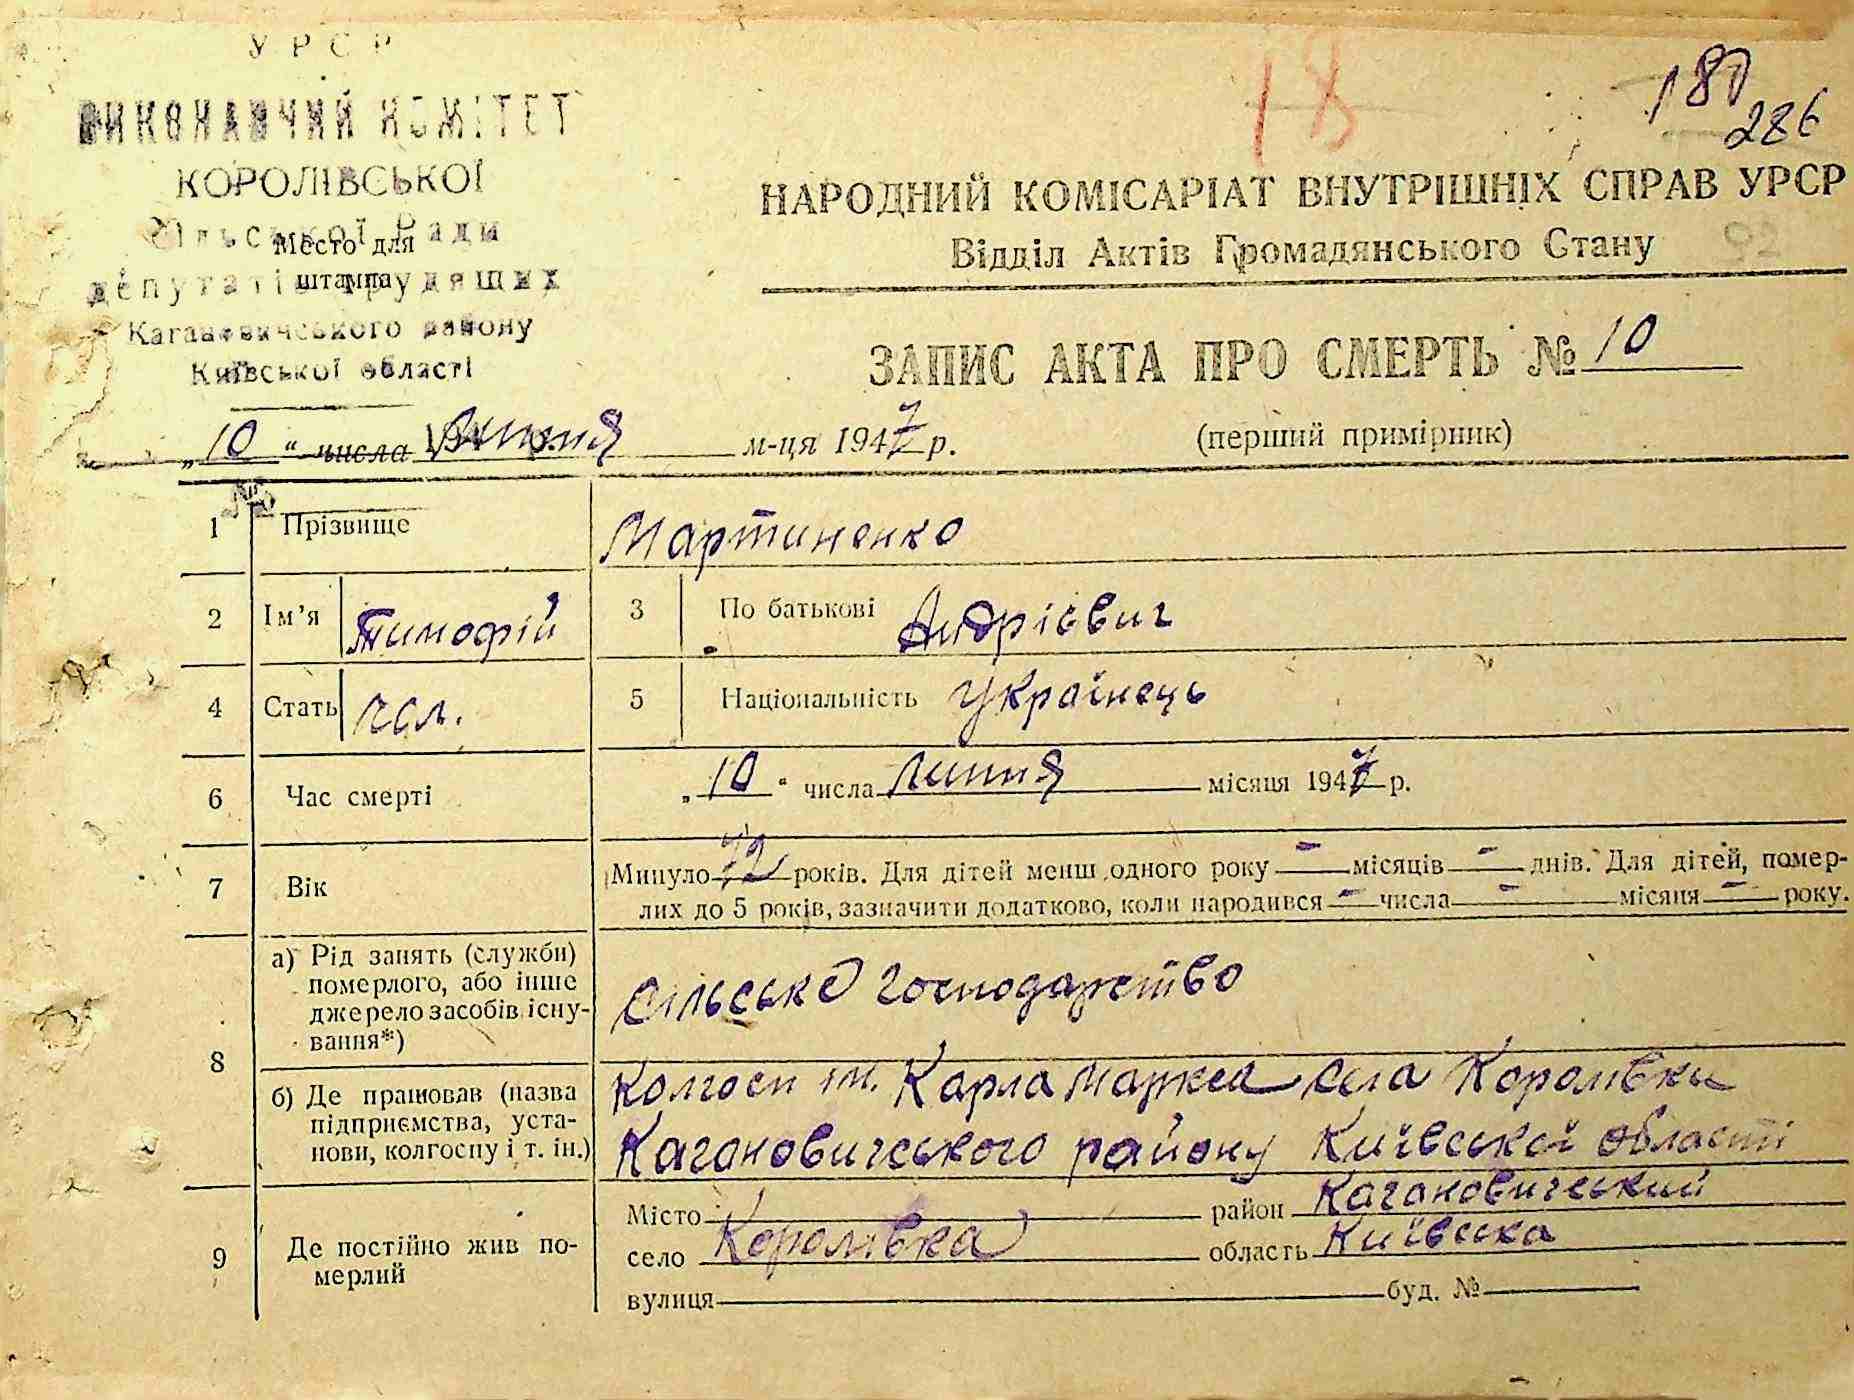 УРСР
ВИКОНАВЧИЙ КОМІТЕТ
КОРОЛІВСЬКОЇ
Сільської Ради
Место для
депутатів трудящих
штампа
Кагановичського району
Київської області
18
180
286
92
НАРОДНИЙ КОМІСАРІАТ ВНУТРІШНІХ СПРАВ УРСР
Відділ Актів Громадянського Стану
ЗАПИС АКТА ПРО СМЕРТЬ № 10
(перший примірник)
„10“ числа липня м-ця 1947 р.
№
1 Прізвище Мартиненко
2 Ім’я Тимофій 3 По батькові Андрієвич
4 Стать чол. 5 Національність Українець
6 Час смерті „10“ числа липня місяця 1947 р.
7 Вік Минуло 72 років. Для дітей менш одного року — місяців — днів. Для дітей, помер-
лих до 5 років, зазначити додатково, коли народився — числа — місяця — року.
8 а) Рід занять (служби)
померлого, або інше
джерело засобів існу-
вання*)
сільське господарство
б) Де працював (назва
підприємства, уста-
нови, колгоспу і т. ін.)
Колгосп ім. Карла Маркса села Королівки
Кагановичського району Київської області
9 Де постійно жив по-
мерлий
Місто район Кагановичський
село Королівка область Київська
вулиця буд. №